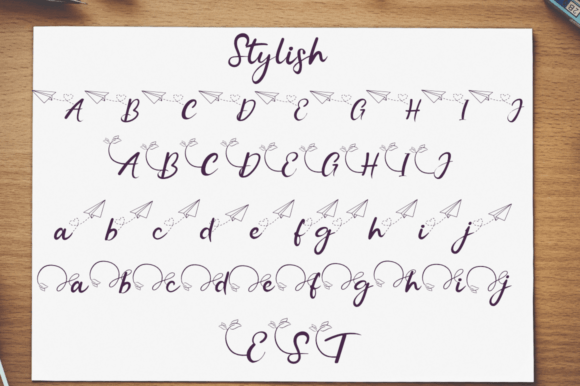 Stylish
A B C D E G H I J
A B C D E G H I J
a b c d e f g h i j
a b c d e f g h i j
E S T